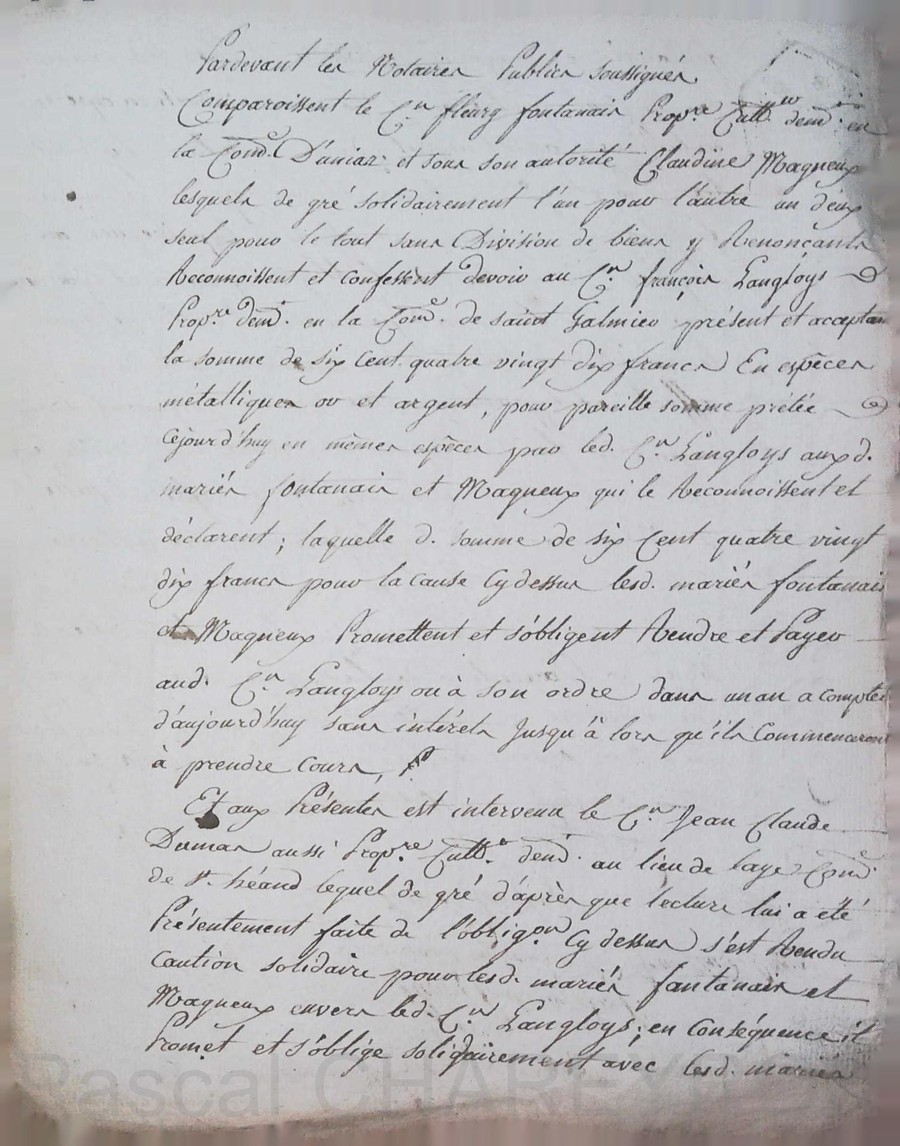 Pardevant les Notaires Publics soussignés
Comparoissent le C.en fleury fontanais Prop.re Cult.r dem.t en
la Com.e D'aniaz et sous son autorité Claudine Magneux
lesquels de gré solidairement l'un pour l'autre un d'eux
seul pour le tout sans Division de biens y Renonçants
Reconnoissent et confessent devoir au C.en françois Langloys
Prop.re dem.t en la Com.e de saint Galmier présent et acceptant
la somme de six cent quatre vingt dix francs En espèces
métalliques or et argent, pour pareille somme prêtée
Cejourd'huy en mêmes espèces par led. C.en Langloys aux d.
mariés fontanais et Magneux qui le Reconnoissent et
déclarent; laquelle d. somme de six Cent quatre vingt
dix francs pour la cause Cydessus lesd. mariés fontanais
et Magneux Promettent et s'obligent Rendre et Payer
aud. C.en Langloys ou à son ordre dans un an a compter
d'aujourd'huy sans intérêts Jusqu'à lors qu'ils Commenceront
à prendre Cours,
Et aux Présentes est intervenu le C.en Jean Claude
Dumas aussi Prop.re Cult.r dem.t au lieu de Laye Com.e
de S.t héand lequel de gré d'après que lecture lui a été
Présentement faite de l'oblig.on Cy dessus s'est Rendu
Caution solidaire pour lesd. mariés fantanais et
Magneux envers led. C.en Langloys; en conséquence il
Promet et s'oblige solidairement avec lesd. mariés
Pascal CHAREY